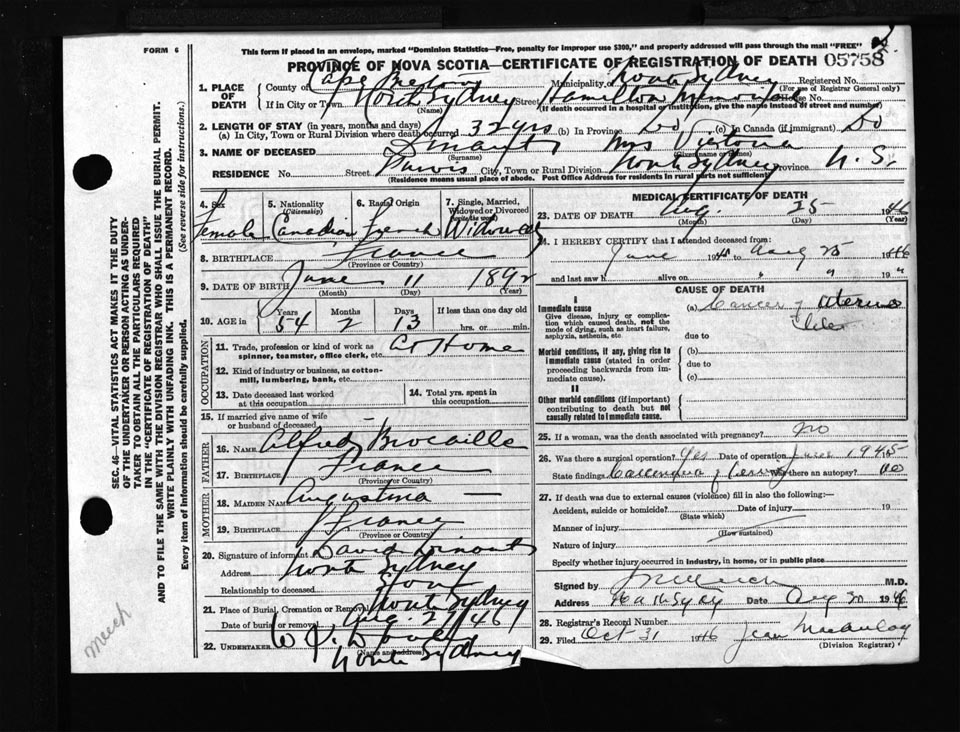 FORM 6
This form if placed in an envelope, marked "Dominion Statistics—Free, penalty for improper use $300," and properly addressed will pass through the mail "FREE"
PROVINCE OF NOVA SCOTIA—CERTIFICATE OF REGISTRATION OF DEATH 05758
1. PLACE OF DEATH County of Cape Breton Municipality of North Sydney Registered No.
(For use of Registrar General only)
If in City or Town North Sydney Street Hamilton Memorial House No.
(Name) (If death occurred in a hospital or institution, give the name instead of street and number)
2. LENGTH OF STAY (in years, months and days)
(a) In City, Town or Rural Division where death occurred 32 yrs (b) In Province Do (c) In Canada (if immigrant) Do
3. NAME OF DECEASED Dinant Mrs Victoria
(Surname) (Given name or names)
RESIDENCE No. Street City, Town or Rural Division North Sydney Province N.S.
(Residence means usual place of abode. Post Office Address for residents in rural parts not sufficient)
4. Sex Female
5. Nationality (Citizenship) Canadian
6. Racial Origin French
7. Single, Married, Widowed or Divorced (write the word) Widowed
8. BIRTHPLACE France
(Province or Country)
9. DATE OF BIRTH June 11 1892
(Month) (Day) (Year)
10. AGE in Years 54 Months 2 Days 13 If less than one day old
hrs. or min.
OCCUPATION
11. Trade, profession or kind of work as spinner, teamster, office clerk, etc. At Home
12. Kind of industry or business, as cotton-mill, lumbering, bank, etc.
13. Date deceased last worked at this occupation
14. Total yrs. spent in this occupation
15. If married give name of wife or husband of deceased —
FATHER
16. Name Alfred Brocaille
17. Birthplace France
(Province or Country)
MOTHER
18. Maiden Name Augustina —
19. Birthplace France
(Province or Country)
20. Signature of informant David Dinant
Address North Sydney
Relationship to deceased Son
21. Place of Burial, Cremation or Removal North Sydney
Date of burial or removal Aug. 27/46
22. Undertaker
North Sydney
(Name and address)
MEDICAL CERTIFICATE OF DEATH
23. DATE OF DEATH Aug. 25 1946
(Month) (Day) (Year)
24. I HEREBY CERTIFY that I attended deceased from:
June 1945 to Aug 25 1946
and last saw h alive on " " 19 "
CAUSE OF DEATH
I
Immediate cause
Give disease, injury or complication which caused death, not the mode of dying, such as heart failure, asphyxia, asthenia, etc
(a) Cancer of uterus
due to
Morbid conditions, if any, giving rise to immediate cause (stated in order proceeding backwards from immediate cause).
(b)
due to
(c)
II
Other morbid conditions (if important) contributing to death but not causally related to immediate cause.
25. If a woman, was the death associated with pregnancy? No
26. Was there a surgical operation? Yes Date of operation June 1945
State findings Carcinoma of Cervix Was there an autopsy? no
27. If death was due to external causes (violence) fill in also the following:—
Accident, suicide or homicide? Date of injury 19
(State which)
Manner of injury
(How sustained)
Nature of injury
Specify whether injury occurred in industry, in home, or in public place
Signed by M.D.
Address North Sydney Date Aug 30 1946
28. Registrar's Record Number
29. Filed Oct 31 1946 Jean MacAulay
(Division Registrar)
SEC. 46—VITAL STATISTICS ACT MAKES IT THE DUTY
OF THE UNDERTAKER OR PERSON ACTING AS UNDER-
TAKER TO OBTAIN ALL THE PARTICULARS REQUIRED
IN THE "CERTIFICATE OF REGISTRATION OF DEATH"
AND TO FILE THE SAME WITH THE DIVISION REGISTRAR WHO SHALL ISSUE THE BURIAL PERMIT.
WRITE PLAINLY WITH UNFADING INK. THIS IS A PERMANENT RECORD.
Every item of information should be carefully supplied. (See reverse side for instructions.)